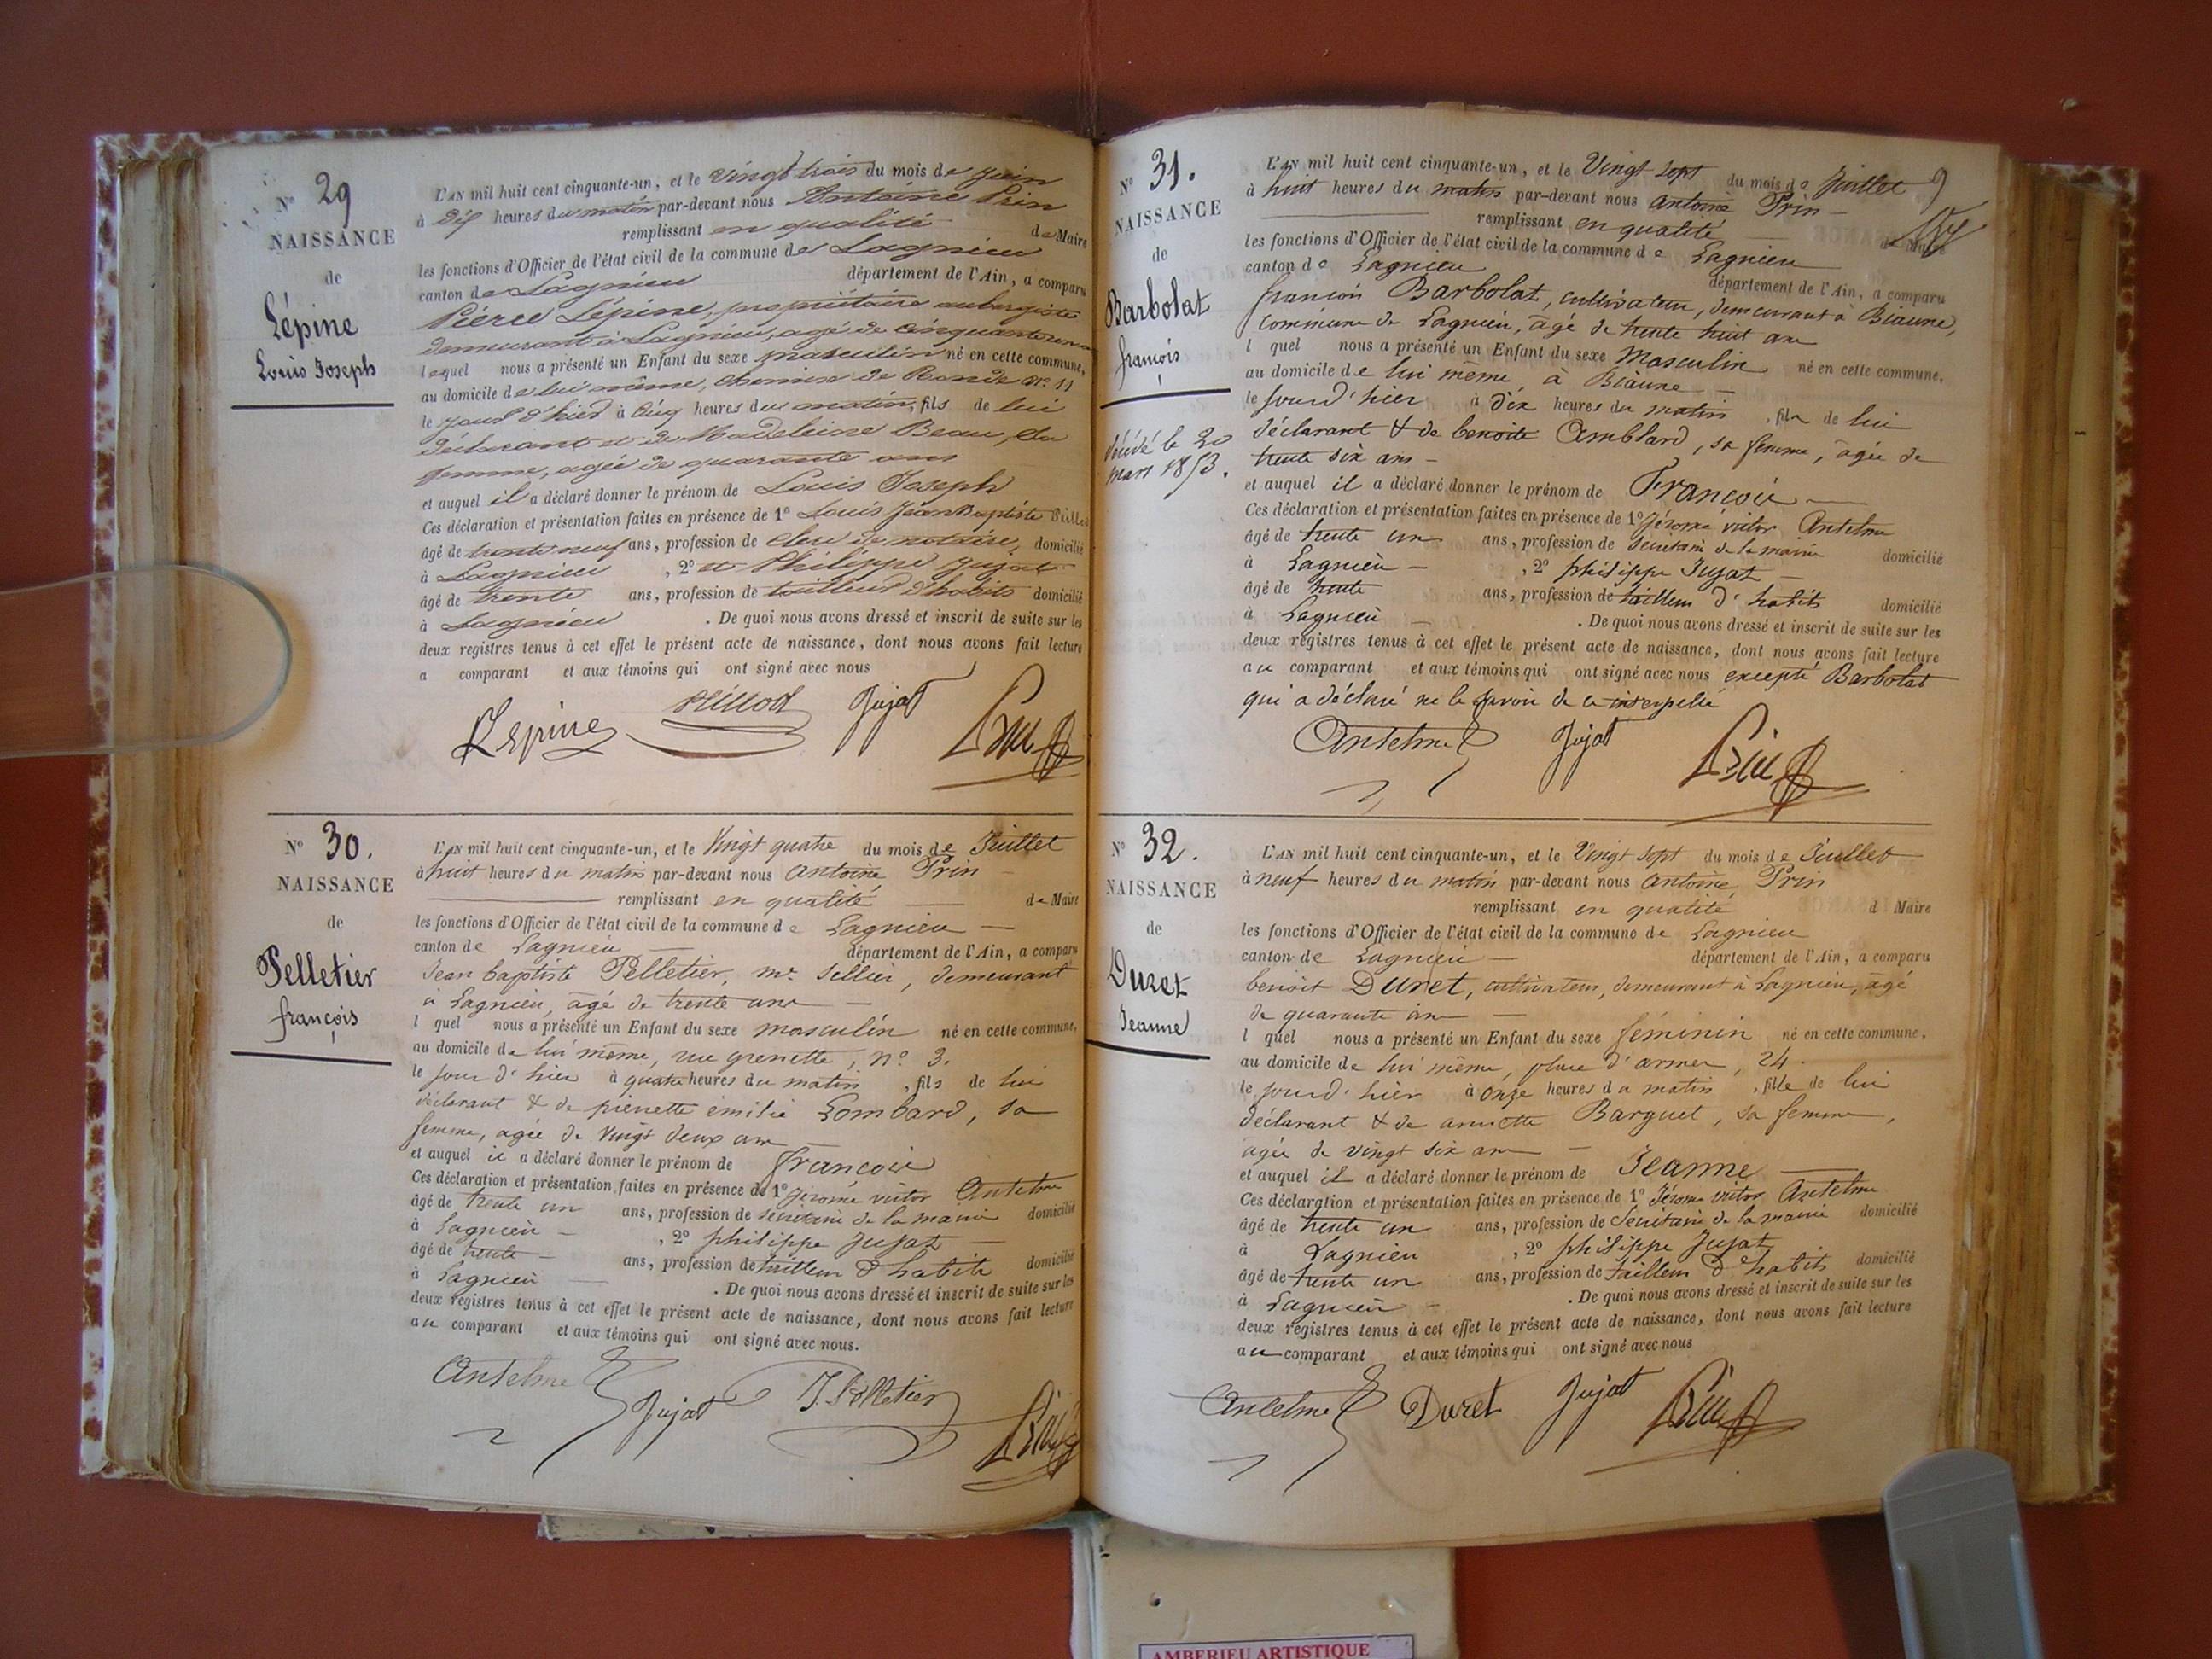 N° 29
NAISSANCE
de
Lépine
Louis Joseph
L'AN mil huit cent cinquante-un, et le Vingt trois du mois de juin
à dix heures du matin par-devant nous Antoine Prin
remplissant en qualité de Maire
les fonctions d'Officier de l'état civil de la commune de Lagnieu
canton de Lagnieu département de l'Ain, a comparu
Pierre Lépine, propriétaire aubergiste
demeurant à Lagnieu, agé de cinquante un
lequel nous a présenté un Enfant du sexe masculin né en cette commune,
au domicile de lui même, chemin de Ronde n° 11
le jour d'hier à cinq heures du matin, fils de lui
déclarant et de Madeleine Beau, sa
femme, agée de quarante ans
et auquel il a déclaré donner le prénom de Louis Joseph
Ces déclaration et présentation faites en présence de 1° Louis Jean Baptiste
âgé de trente neuf ans, profession de clerc de notaire, domicilié
à Lagnieu, 2° et Philippe Jujat
âgé de trente ans, profession de tailleur d'habits domicilié
à Lagnieu . De quoi nous avons dressé et inscrit de suite sur les
deux registres tenus à cet effet le présent acte de naissance, dont nous avons fait lecture
a comparant et aux témoins qui ont signé avec nous
Lepine Jujat Prin
N° 30.
NAISSANCE
de
Pelletier
françois
L'AN mil huit cent cinquante-un, et le Vingt quatre du mois de Juillet
à huit heures du matin par-devant nous Antoine Prin
remplissant en qualité de Maire
les fonctions d'Officier de l'état civil de la commune de Lagnieu
canton de Lagnieu département de l'Ain, a comparu
Jean baptiste Pelletier, me sellier, demeurant
à Lagnieu, âgé de trente ans
l quel nous a présenté un Enfant du sexe masculin né en cette commune,
au domicile de lui même, rue grenette, n° 3.
le jour d'hier à quatre heures du matin, fils de lui
déclarant & de pierrette émilie Lombard, sa
femme, agée de Vingt deux ans
et auquel il a déclaré donner le prénom de françois
Ces déclaration et présentation faites en présence de 1° Jérome victor Antelme
âgé de trente un ans, profession de secrétaire de la mairie domicilié
à Lagnieu , 2° philippe Jujat
âgé de trente ans, profession de tailleur d'habits domicilié
à Lagnieu . De quoi nous avons dressé et inscrit de suite sur les
deux registres tenus à cet effet le présent acte de naissance, dont nous avons fait lecture
au comparant et aux témoins qui ont signé avec nous.
Antelme Jujat J. Pelletier Prin
9
N° 31.
NAISSANCE
de
Barbolat
françois
décédé le 20
mars 1853.
L'AN mil huit cent cinquante-un, et le Vingt sept du mois de juillet
à huit heures du matin par-devant nous antoine Prin
remplissant en qualité de Maire
les fonctions d'Officier de l'état civil de la commune de Lagnieu
canton de Lagnieu département de l'Ain, a comparu
françois Barbolat, cultivateur, demeurant à Biaune,
commune de Lagnieu, âgé de trente huit ans
l quel nous a présenté un Enfant du sexe Masculin né en cette commune,
au domicile de lui même, à Biaune
le jour d'hier à dix heures du matin, fils de lui
déclarant & de benoite Amblard, sa femme, âgée de
trente six ans
et auquel il a déclaré donner le prénom de François
Ces déclaration et présentation faites en présence de 1° Jérome victor Antelme
âgé de trente un ans, profession de secrétaire de la mairie domicilié
à Lagnieu , 2° philippe Jujat
âgé de trente ans, profession de tailleur d'habits domicilié
à Lagnieu . De quoi nous avons dressé et inscrit de suite sur les
deux registres tenus à cet effet le présent acte de naissance, dont nous avons fait lecture
au comparant et aux témoins qui ont signé avec nous excepté Barbolat
qui a déclaré ne le savoir de ce interpellé
Antelme Jujat Prin
N° 32.
NAISSANCE
de
Duret
Jeanne
L'AN mil huit cent cinquante-un, et le Vingt sept du mois de Juillet
à neuf heures du matin par-devant nous Antoine Prin
remplissant en qualité d Maire
les fonctions d'Officier de l'état civil de la commune de Lagnieu
canton de Lagnieu département de l'Ain, a comparu
benoit Duret, cultivateur, demeurant à Lagnieu, âgé
de quarante ans
l quel nous a présenté un Enfant du sexe féminin né en cette commune,
au domicile de lui même, place d'armes, 24
le jour d'hier à onze heures du matin, fille de lui
déclarant & de annette Barguet, sa femme,
agée de vingt six ans
et auquel il a déclaré donner le prénom de Jeanne
Ces déclaration et présentation faites en présence de 1° Jérome victor Antelme
âgé de trente un ans, profession de Secrétaire de la mairie domicilié
à Lagnieu , 2° philippe Jujat
âgé de trente un ans, profession de tailleur d'habits domicilié
à Lagnieu . De quoi nous avons dressé et inscrit de suite sur les
deux registres tenus à cet effet le présent acte de naissance, dont nous avons fait lecture
au comparant et aux témoins qui ont signé avec nous
Antelme Duret Jujat Prin
AMBERIEU ARTISTIQUE